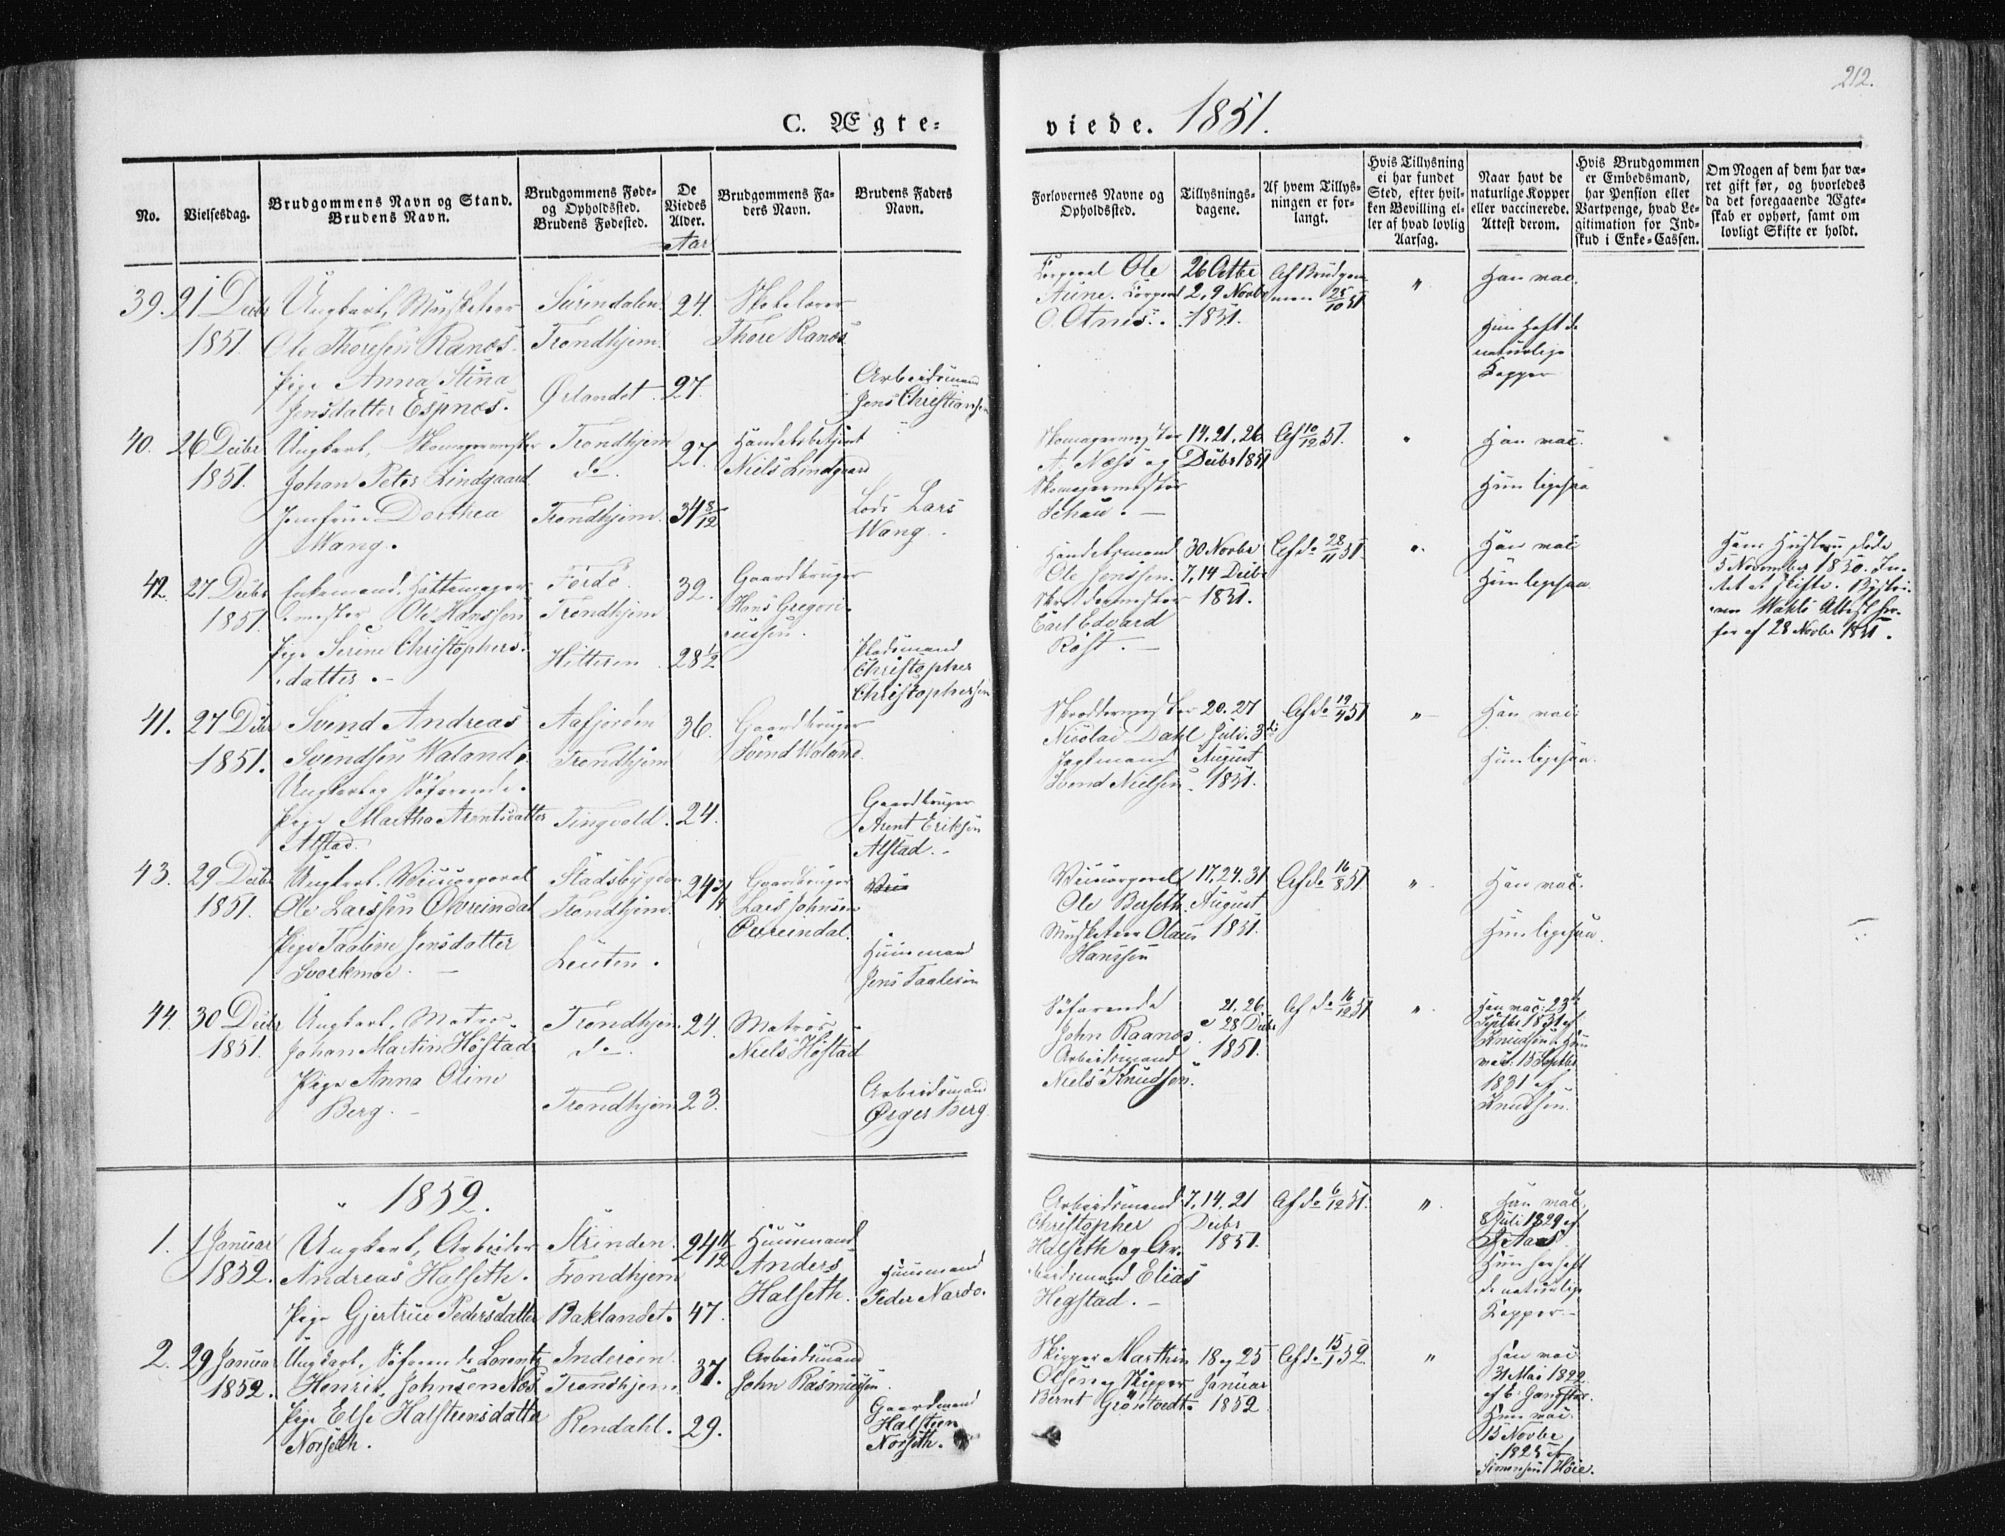 212.
C. Ægte=
viede. 1851.
No.
Vielsesdag.
Brudgommens Navn og Stand.
Brudens Navn.
Brudgommens Føde-
og Opholdssted.
Brudens Fødested.
De
Viedes
Alder.
Aar
Brudgommens Fa-
ders Navn.
Brudens Faders
Navn.
Forlovernes Navne og
Opholdssted.
Tillysnings-
dagene.
Af hvem Tillys-
ningen er for-
langt.
Hvis Tillysning
ei har fundet
Sted, efter hvil-
ken Bevilling el-
ler af hvad lovlig
Aarsag.
Naar havt de
naturlige Kopper
eller vaccinerede.
Attest derom.
Hvis Brudgommen
er Embedsmand,
har Pension eller
Vartpenge, hvad Le-
gitimation for Ind-
skud i Enke=Cassen.
Om Nogen af dem har væ-
ret gift før, og hvorledes
da det foregaaende Ægte-
skab er ophørt, samt om
lovligt Skifte er holdt.
39. 21 Decbr
1851.
Ungkarl, Musketeer
Ole Thoresen Ranæs.
Pige Anna Stina
Jensdatter Espnæs.
Surendalen
Trondhjem.
Ørlandet.
24.
27.
Thore Ranæs
Arbeidsmand
Jens Christiansen
Corporal Ole
Aune. Corporal
O. Otnes.
26 Octbr
2, 9 Novbr
1851.
Af Brudgom-
men 25/10 51
"
Han vac.
Hun havt de
naturlige
Kopper
40. 26 Decbr
1851.
Ungkarl, Skomagermester
Johan Peter Lindgaard
Jomfrue Dorthea
Wang.
Trondhjem
do.
Trondhjem.
27.
34 8/12
Handelsbetjent
Niels Lindgaard
Lods Lars
Wang.
Skomagermester
A. Næss og
Skomagermester
Schau.
14, 21, 26
Decbr 1851
Af 10/12 51.
"
Han vac.
Hun ligesaa
42. 27 Decbr
1851.
Enkemand, Hattemager-
mester Ole Hanssen
Pige Serine Christophers-
datter.
Førde.
Trondhjem
Hitteren
39.
28 1/2
Gaardbruger
Hans Gregori-
ussen.
Pladsmand
Christopher
Christophersen
Handelsmand
Ole Jenssen.
Skræddermester
Carl Edvard
Røst.
30 Novbr
7, 14 Decbr
1851.
Af do 28/11 51.
"
Han vac.
Hun ligesaa
Hans Hustru døde
5 November 1850. In-
tet at skifte.
Attest her-
for af 28 Novbr 1851.
41. 27 Decbr
1851.
Svend Andreas
Svendsen Waland,
Ungkarl og Søfarende.
Pige Martha Arentsdatter
Alstad.
Aafjorden
Trondhjem
Tingvold.
36.
24.
Gaardbruger
Svend Woland.
Gaardbruger
Arent Eriksen
Alstad.
Skræddermester
Nicolai Dahl
Jagtmand
Svend Nielsen
20. 27
Juli. 3di
August
1851.
Af do 19/4 51
"
Han vac.
Hun ligesaa.
43. 29 Decbr
1851.
Ungkarl, Vicecorporal
Ole Larssen Øvreindal
Pige Taaline Jensdatter
Svorkmoe.
Stadsbygden
Trondhjem.
Leuten.
24 3/4
Gaardbruger
Lars Johnsen
Øvreindal.
Huusmand
Jens Taalesen
Vicecorporal
Ole Berseth.
Musketeer Olaus
Hanssen
17, 24, 31
August
1851.
Af do 16/8 51.
"
Han vac.
Hun ligesaa.
44. 30 Decbr
1851.
Ungkarl, Matros
Johan Martin Høstad
Pige Anna Oline
Berg.
Trondhjem
do.
Trondhjem
24
23.
Matros
Niels Høstad
Arbeidsmand
Ørger Berg.
Søfarende
John Raanæs.
Arbeidsmand
Niels Knudsen.
21, 26
28 Decbr
1851.
Af do 16/12 51
"
Han vac: 23de
Septbr 1831 af
Knudsen. Hun
vac: 15 Septbr
1831 af
Knudsen.
1852.
1. 1 Januar
1852.
Ungkarl, Arbeider
Andreas Halseth.
Pige Gjertrue Pedersdatter
Strinden.
Trondhjem
Baklandet.
24 11/12
47.
Huusmand
Anders
Halseth.
Huusmand
Peder Nardo.
Arbeidsmand
Christopher
Halseth og Ar-
beidsmand Elias
Hegstad.
7, 14, 21
Decbr
1851.
Af do 6/12 51.
"
Han vac.
8 Juli 1829 af
Aas.
Hun har haft
de naturlige
Kopper.
2. 29 Januar
1852.
Ungkarl, Søfarende Lorentz
Henrik Johnsen Næs.
Pige Else Halsteensdatter
Norseth.
Inderøen.
Trondhjem.
Rendahl.
37.
29.
Arbeidsmand
John Rasmussen.
Gaardmand
Halsteen
Norseth.
Skipper Marthin
Olsen og Skipper
Bernt Grøntvedt.
18 og 25
Januar
1852
Af do 15/1 52
"
Han vac.
31 Mai 1822
Hun vac.
15 Novbr
1825 af
Simonsen Høie.